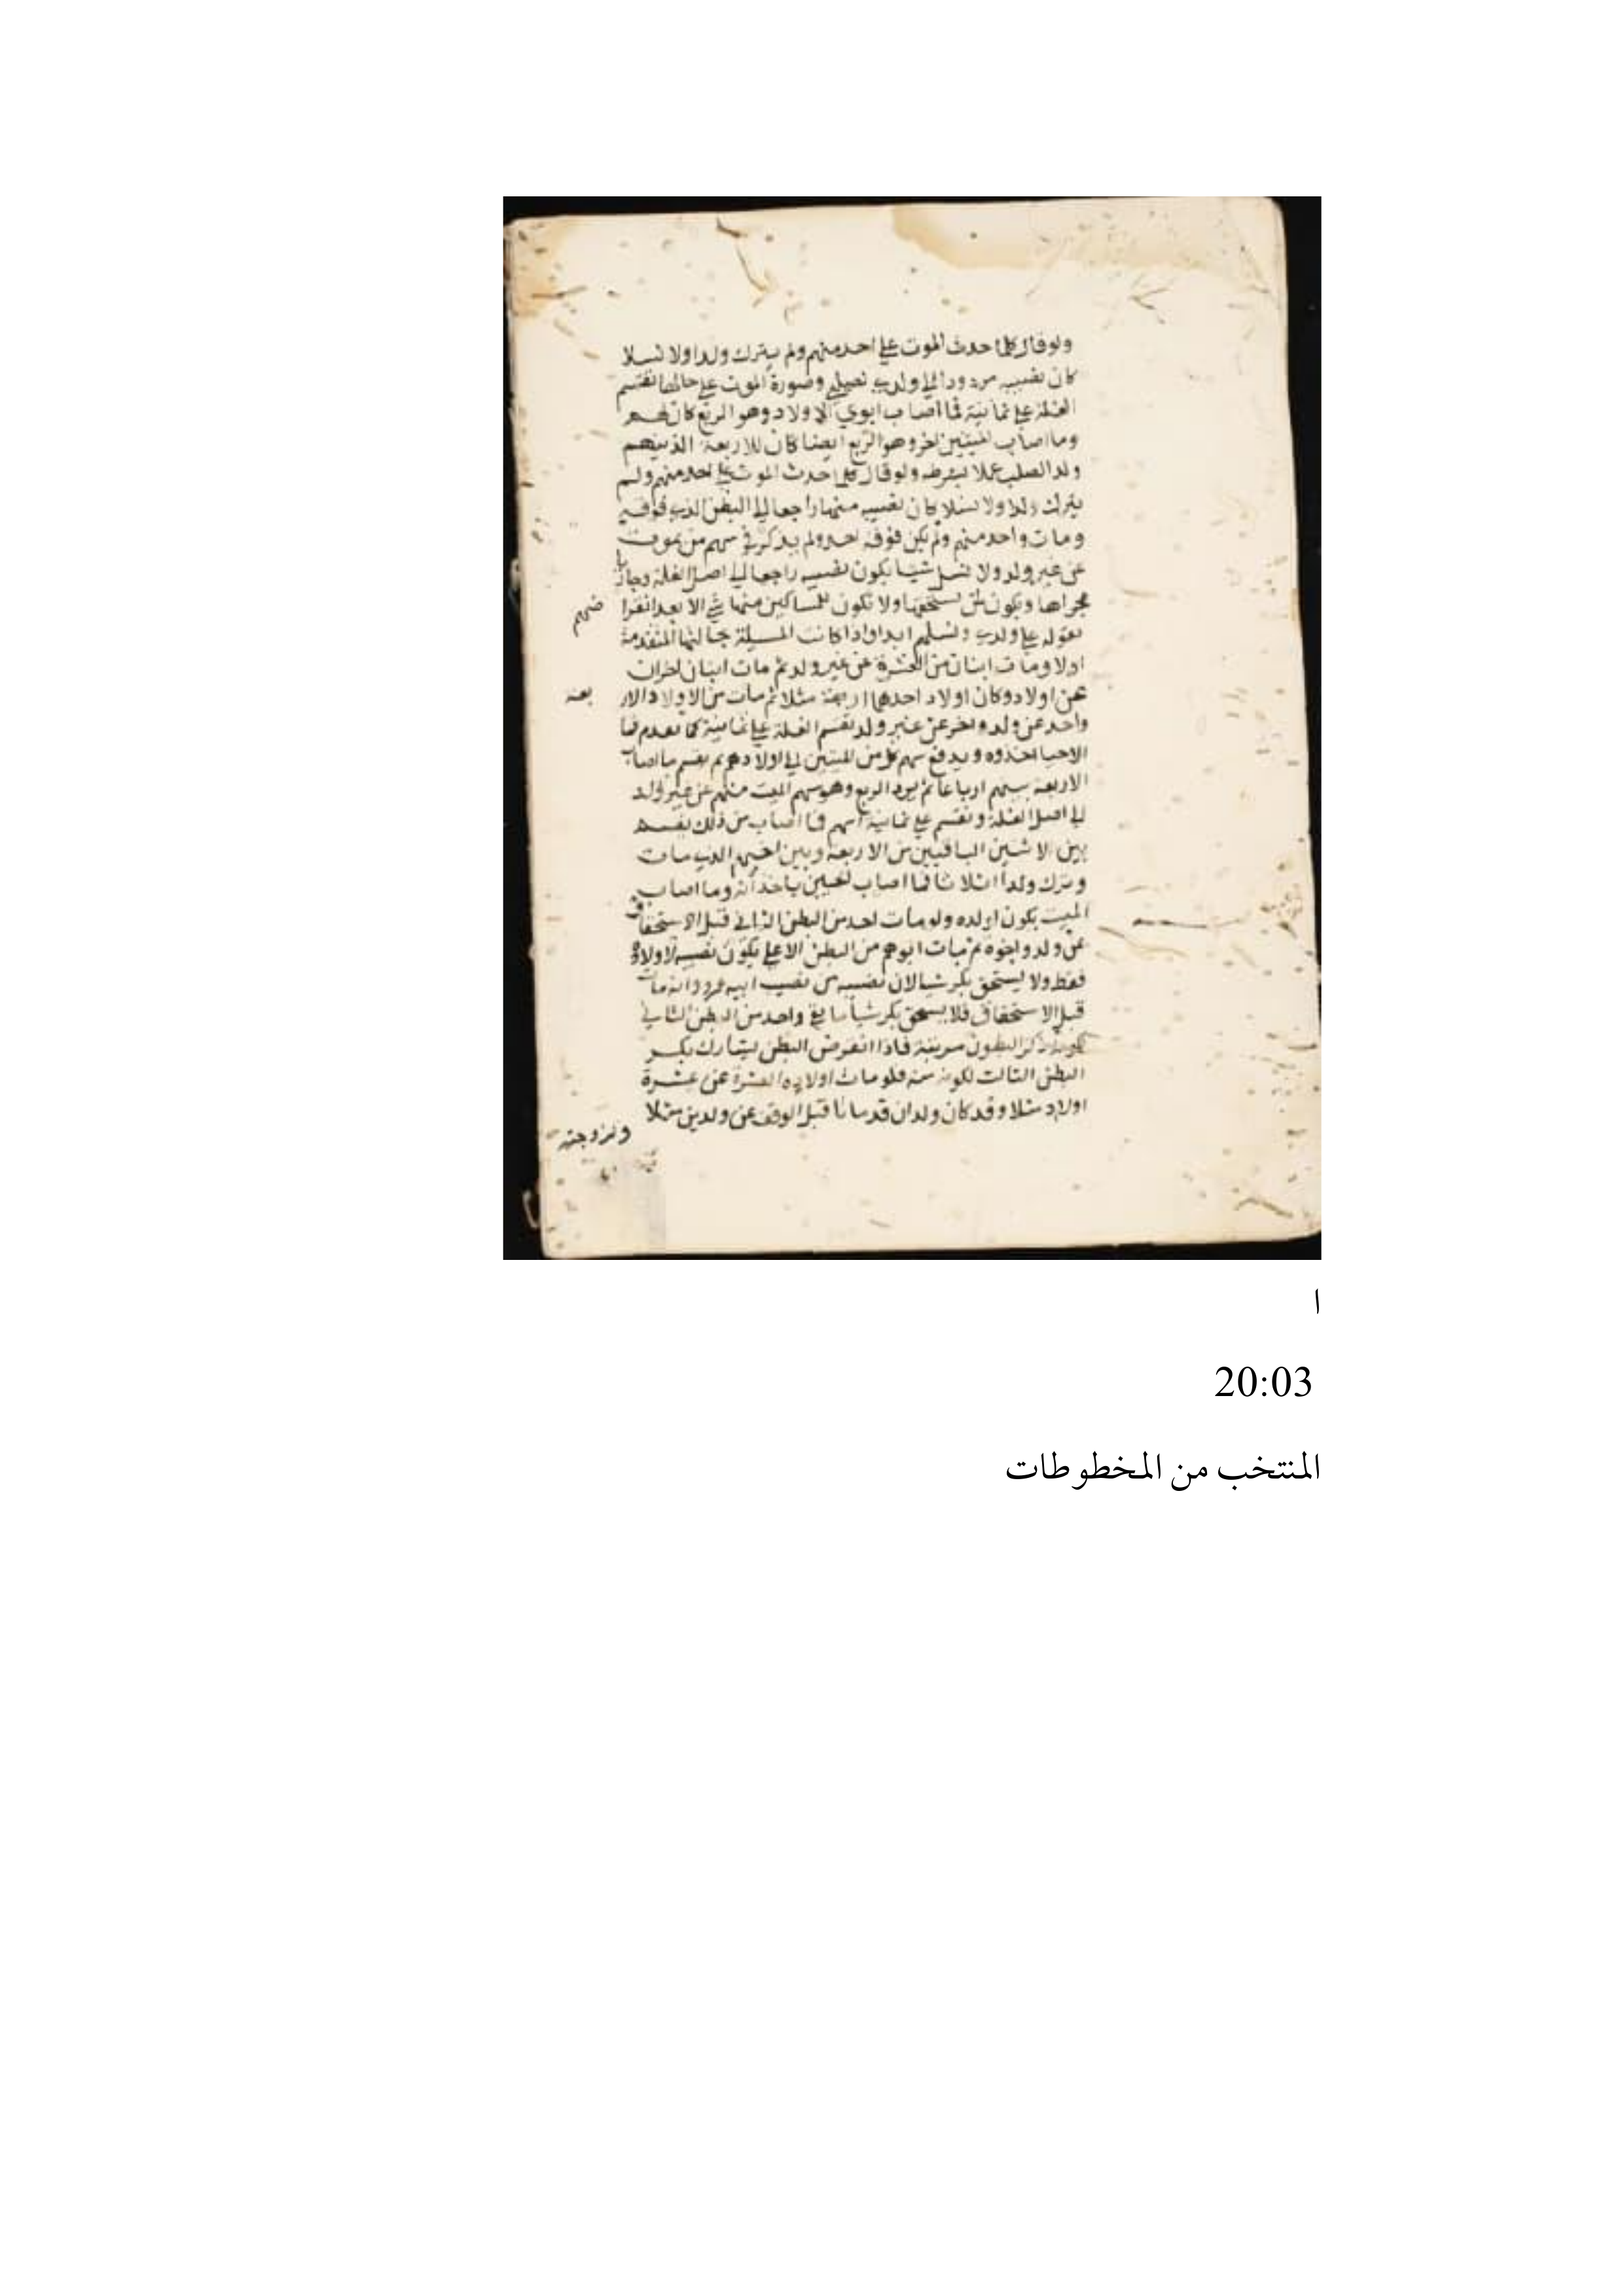 ولو قال كلما حدث الموت على احد منهم ولم يترك ولدا ولا نسلا
كان نصيبه مردودا الى ولدي لصلبي وصورة الموت على حالها تقسم
الغلة على ثمانية فما اصاب ابوي الاولاد وهو الربع كان لهم
وما اصاب الميتين وهو الربع ايضا كان للاربعة الذين هم
ولد الصلب عملا بشرطه ولو قال كلما حدث الموت على احد منهم ولم
يترك ولدا ولا نسلا كان نصيبه منها راجعا الى البطن الذي فوقه
ومات واحد منهم ولم يكن فوقه احد ولم يذكر في سهم من يموت
عن غير ولد ولا نسل شيا يكون نصيبه راجعا الى اصل الغلة وجاريا
مجراها ويكون لمن يستحقها ولا تكون للمساكين منها شي الا بعد انقرا
ضهم
لقوله على ولدي ونسلهم ابدا واذا كانت المسيلة بحالتها المتقدمة
اولا ومات ابنان من العشرة عن غير ولد ثم مات ابنان اخران
عن اولاد وكان اولاد احدهما اربعة مثلا ثم مات من الاولاد الار
بعة
واحد عن ولد واخر عن غير ولد تقسم الغلة على ثمانية كما تقدم فما
الاحيا اخذوه ويدفع سهم كل من الميتين الى اولادهم ثم يقسم ما اصاب
الاربعة بينهم ارباعا ثم يرد الربع وهو سهم الميت منهم عن غير ولد
الى اصل الغلة وتقسم على ثمانية اسهم فما اصاب من ذلك يقسم
بين الاثنين الباقيين من الاربعة وبين اخيهم الذي مات
وترك ولدا اثلاثا فما اصاب الحيين ياخذانه وما اصاب
الميت يكون لولده ولو مات احد من البطن الثاني قبل الاستحقاق
عن ولد واخوة ثم مات ابوهم من البطن الاعلى يكون نصيبه لاولاده
فقط ولا يستحق بكر شيا لان نصيبه من نصيب ابيه عمرو وانه مات
قبل الاستحقاق فلا يستحق بكر شيا ما بقي واحد من البطن الثاني
لكونه ذكر البطون مرتبة فاذا انقرض البطن يشارك بكر
البطن الثالث لكونه منه فلو مات اولاده العشرة عن عشرة
اولاد مثلا وقد كان ولدان قد ماتا قبل الوقف عن ولدين مثلا
ولزوجته
ا
20:03
المنتخب من المخطوطات